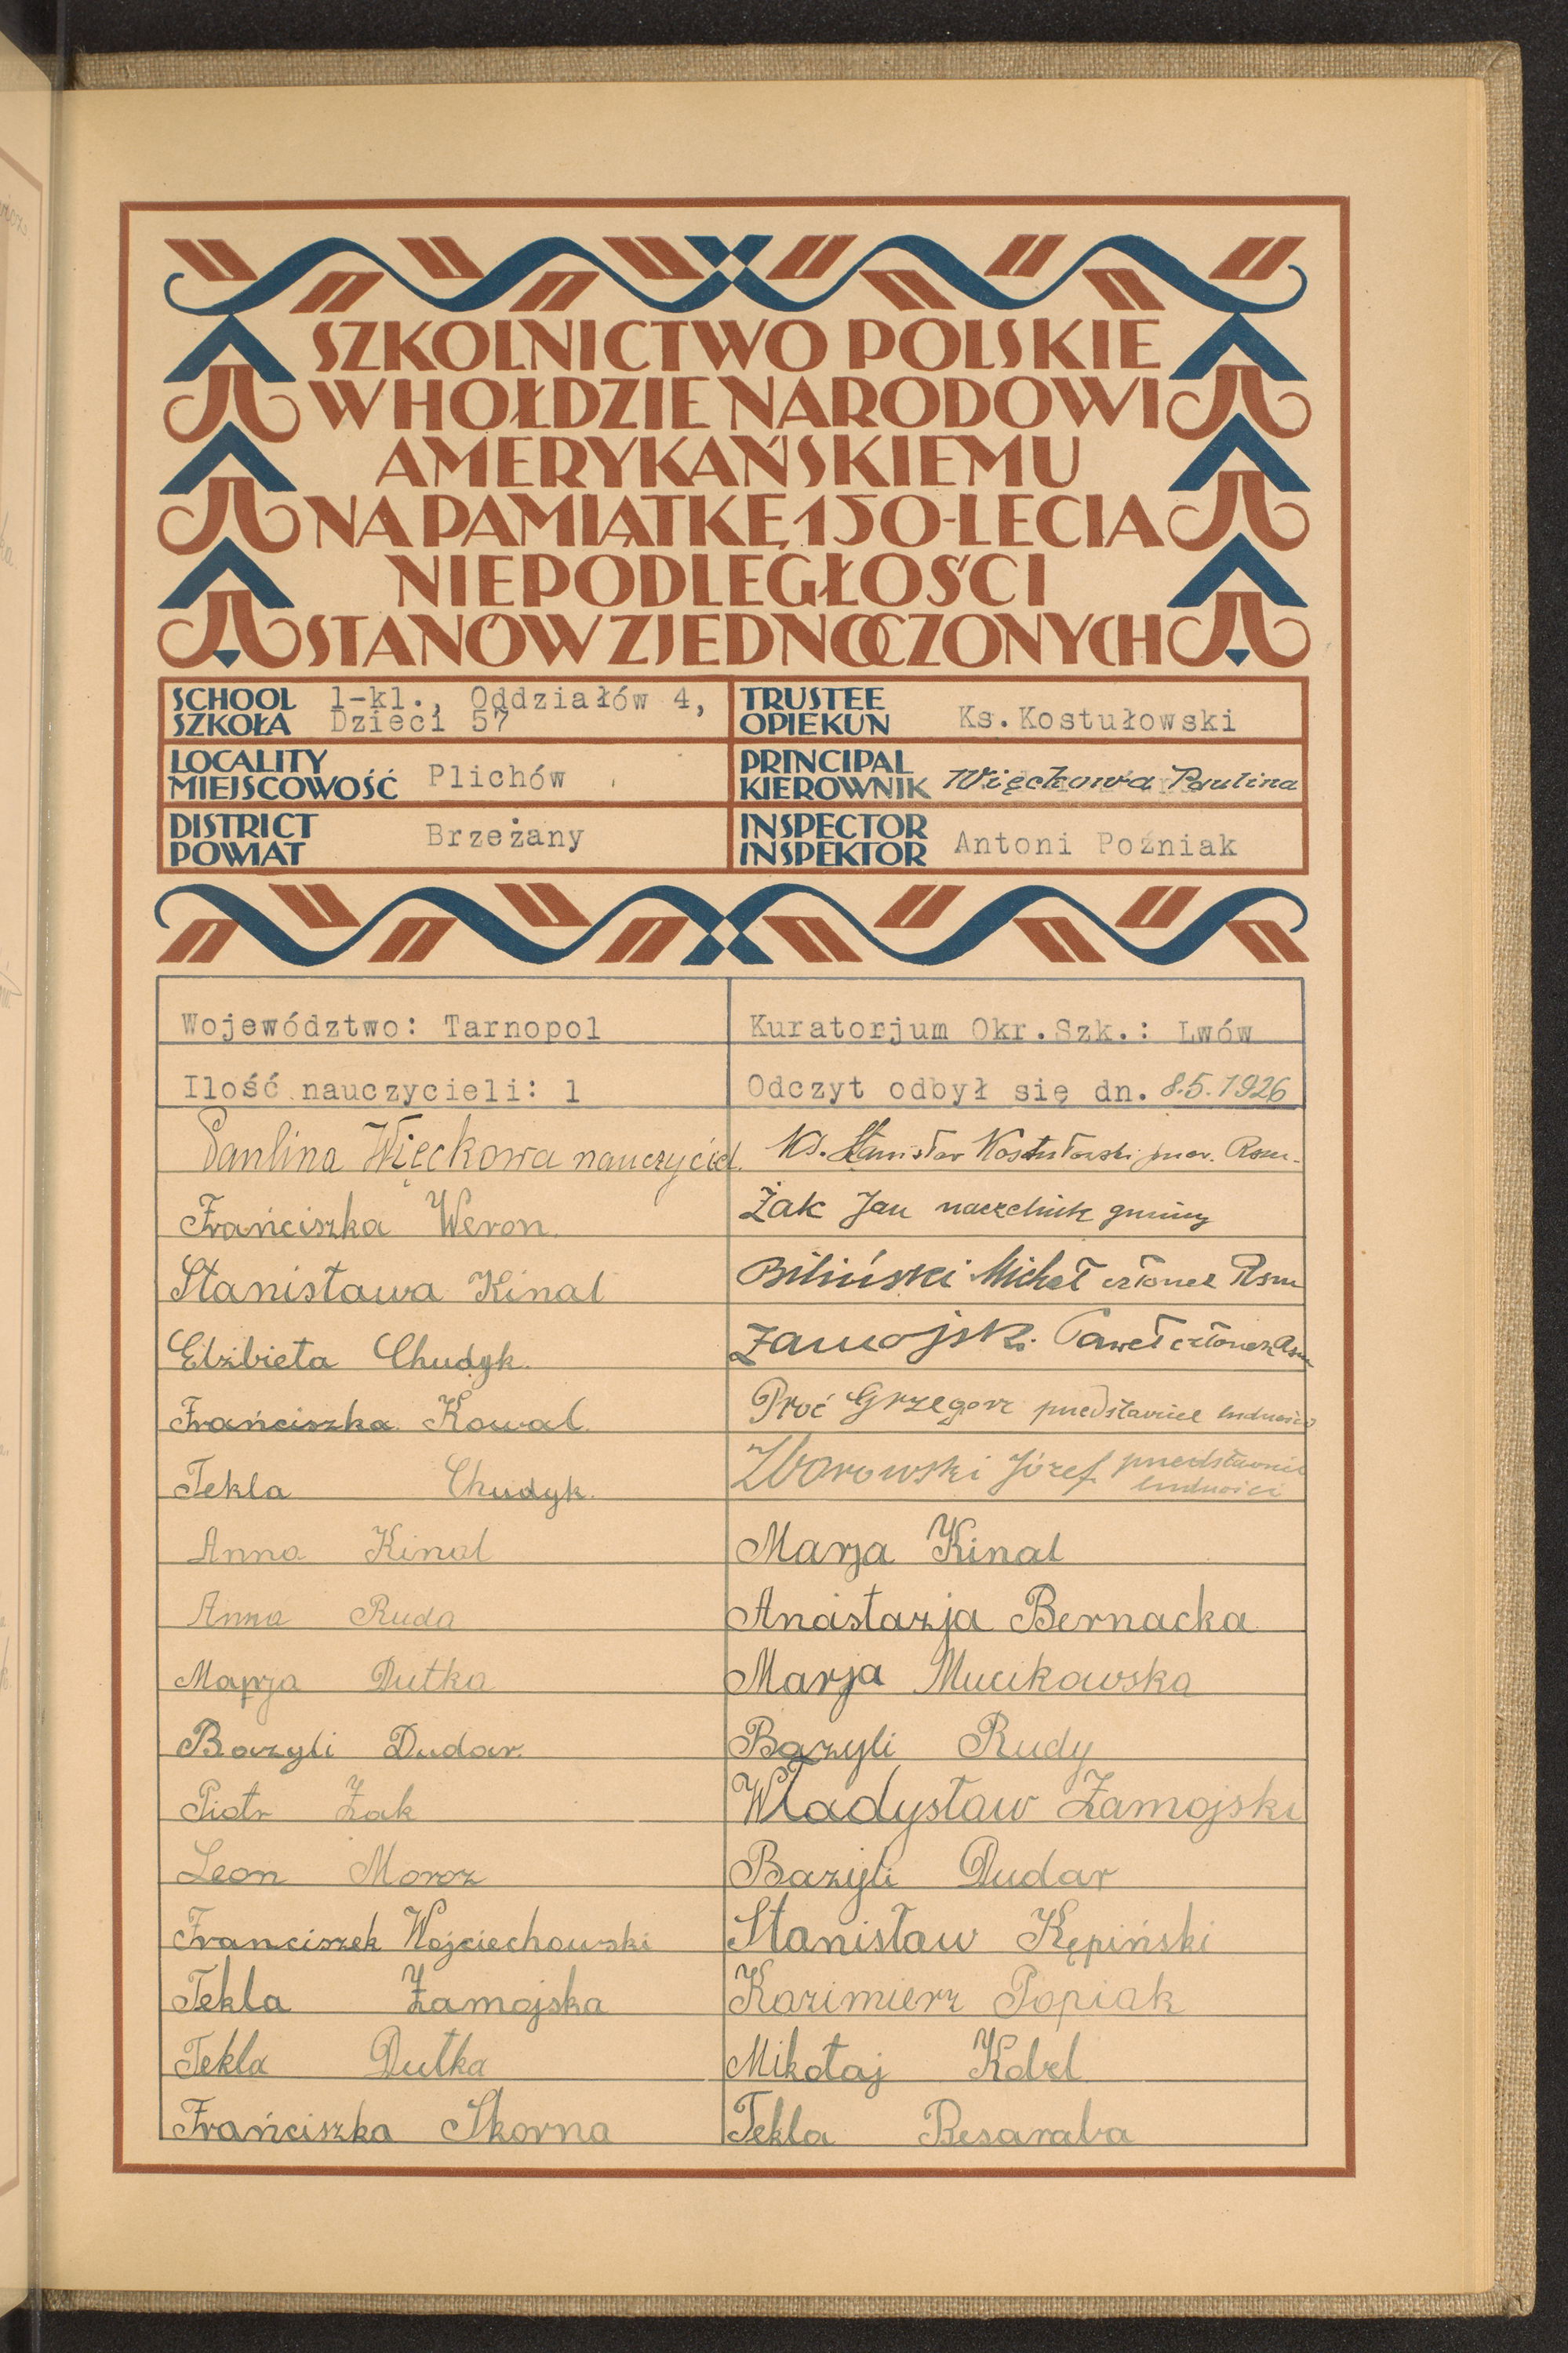 SZKOLNICTWO POLSKIE
W HOŁDZIE NARODOWI
AMERYKAŃSKIEMU
NA PAMIĄTKĘ 150-LECIA
NIEPODLEGŁOŚCI
STANÓW ZJEDNOCZONYCH
SCHOOL
SZKOŁA
1-kl., Oddziałów 4,
Dzieci 57
TRUSTEE
OPIEKUN
Ks. Kostułowski
LOCALITY
MIEJSCOWOŚĆ
Plichów
PRINCIPAL
KIEROWNIK
Więckowa Paulina
DISTRICT
POWIAT
Brzeżany
INSPECTOR
INSPEKTOR
Antoni Poźniak
Województwo: Tarnopol
Kuratorjum Okr.Szk.: Lwów
Ilość nauczycieli: 1
Odczyt odbył się dn. 8.5.1926
Paulina Więckowa nauczyciel.
Ks. Stanisław Kostułowski
Frańciszka Weron.
Żak Jan naczelnik gminy
Stanisława Kinal
Biliński Michał członek Rsm
Elżbieta Chudyk.
Zamojski Paweł członek Rsm
Frańciszka Kowal
Proć Grzegorz przedstawiciel ludności
Tekla Chudyk.
Zborowski Józef przedstawiciel
ludności
Anna Kinal
Marja Kinal
Anna Ruda
Anastazja Bernacka
Marja Dutka
Marja Mucikowska
Bazyli Dudar.
Bazyli Rudy
Piotr Żak
Władysław Zamojski
Leon Moroz
Bazyli Dudar
Franciszek Wojciechowski
Stanisław Kępiński
Tekla Zamojska
Kazimierz Popiak
Tekla Dutka
Mikołaj Kobel
Frańciszka Skorna
Tekla Besaraba